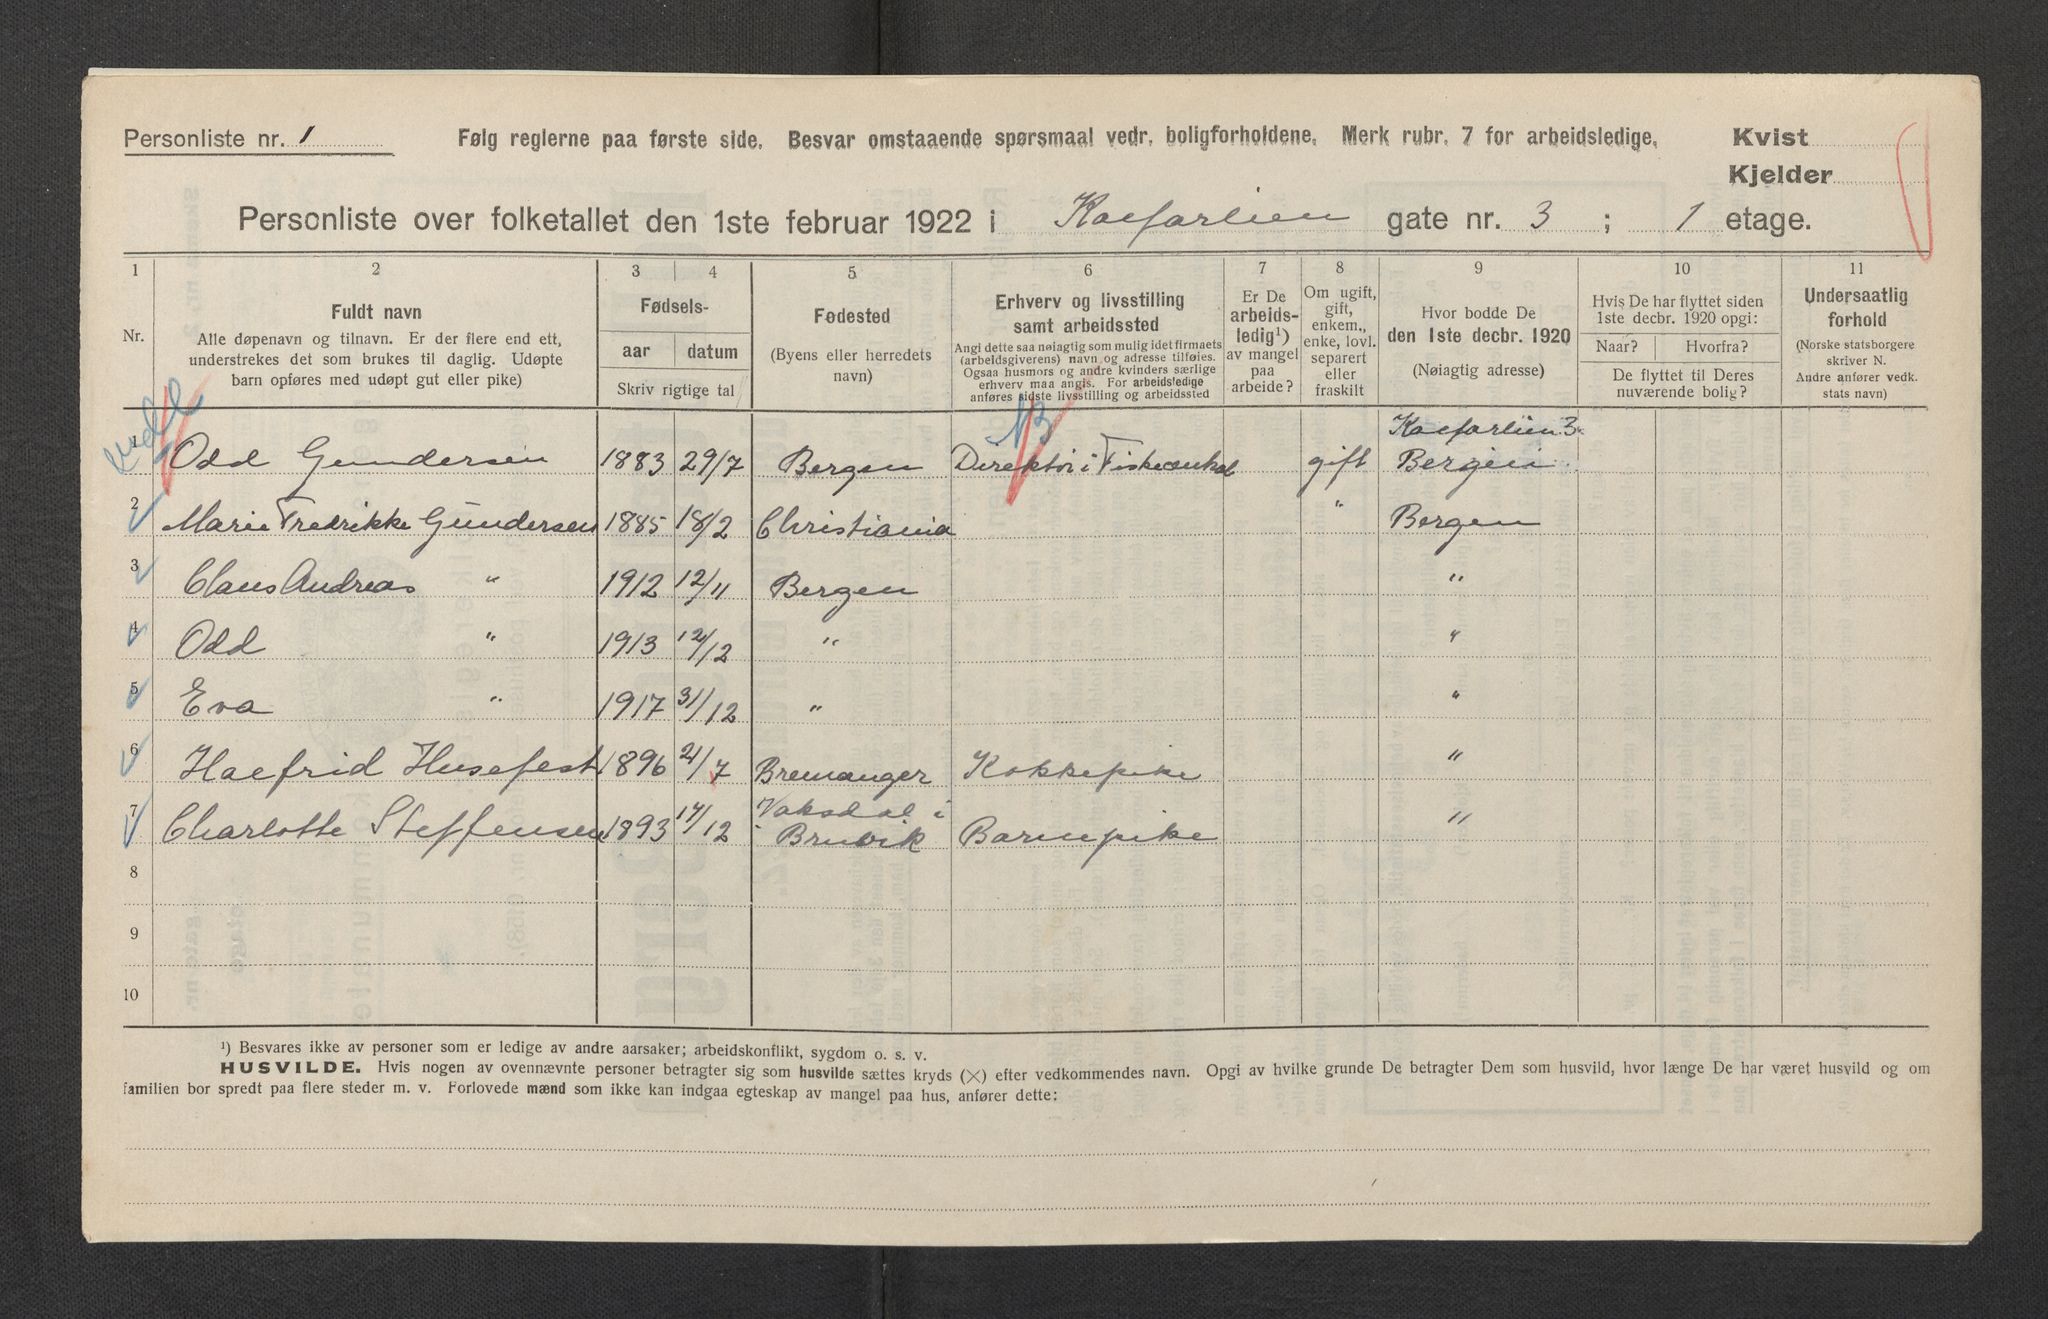 Personliste nr. 1
Følg reglerne paa første side. Besvar omstaaende spørsmaal vedr. boligforholdene. Merk rubr. 7 for arbeidsledige.
Kvist
Kjelder
Personliste over folketallet den 1ste februar 1922 i Kalfarlien gate nr. 3 ; 1 etage.
1 2 3 4 5 6 7 8 9 10 11
Nr.
Fuldt navn
Alle døpenavn og tilnavn. Er der flere end ett,
understrekes det som brukes til daglig. Udøpte
barn opføres med udøpt gut eller pike)
Fødsels-
aar datum
Skriv rigtige tal
Fødested
(Byens eller herredets
navn)
Erhverv og livsstilling
samt arbeidssted
Angi dette saa nøiagtig som mulig idet firmaets
(arbeidsgiverens) navn og adresse tilføies.
Ogsaa husmors og andre kvinders særlige
erhverv maa angis. For arbeidsledige
anføres sidste livsstilling og arbeidssted
Er De
arbeids-
ledig¹)
av mangel
paa
arbeide?
Om ugift,
gift,
enkem.,
enke, lovl.
separert
eller
fraskilt
Hvor bodde De
den 1ste decbr. 1920
(Nøiagtig adresse)
Hvis De har flyttet siden
1ste decbr. 1920 opgi:
Naar? Hvorfra?
De flyttet til Deres
nuværende bolig?
Undersaatlig
forhold
(Norske statsborgere
skriver N.
Andre anfører vedk.
stats navn)
Kalfarlien 3
1 Odd Gundersen 1883 29/7 Bergen Direktør i gift Bergen
2 Marie Fredrikke Gundersen 1885 18/2 Christiania " Bergen
3 Claus Andreas " 1912 12/11 Bergen "
4 Odd " 1913 12/12 " "
5 Eva " 1917 31/12 " "
6 Husefest 1896 21/7 Bremanger Kokkepike "
7 Charlotte Steffensen 1893 17/12 Vaksdal i Bruvik Barnepike "
8
9
10
¹) Besvares ikke av personer som er ledige av andre aarsaker; arbeidskonflikt, sygdom o. s. v.
HUSVILDE. Hvis nogen av ovennævnte personer betragter sig som husvilde sættes kryds (×) efter vedkommendes navn. Opgi av hvilke grunde De betragter Dem som husvild, hvor længe De har været husvild og om
familien bor spredt paa flere steder m. v. Forlovede mænd som ikke kan indgaa egteskap av mangel paa hus, anfører dette: